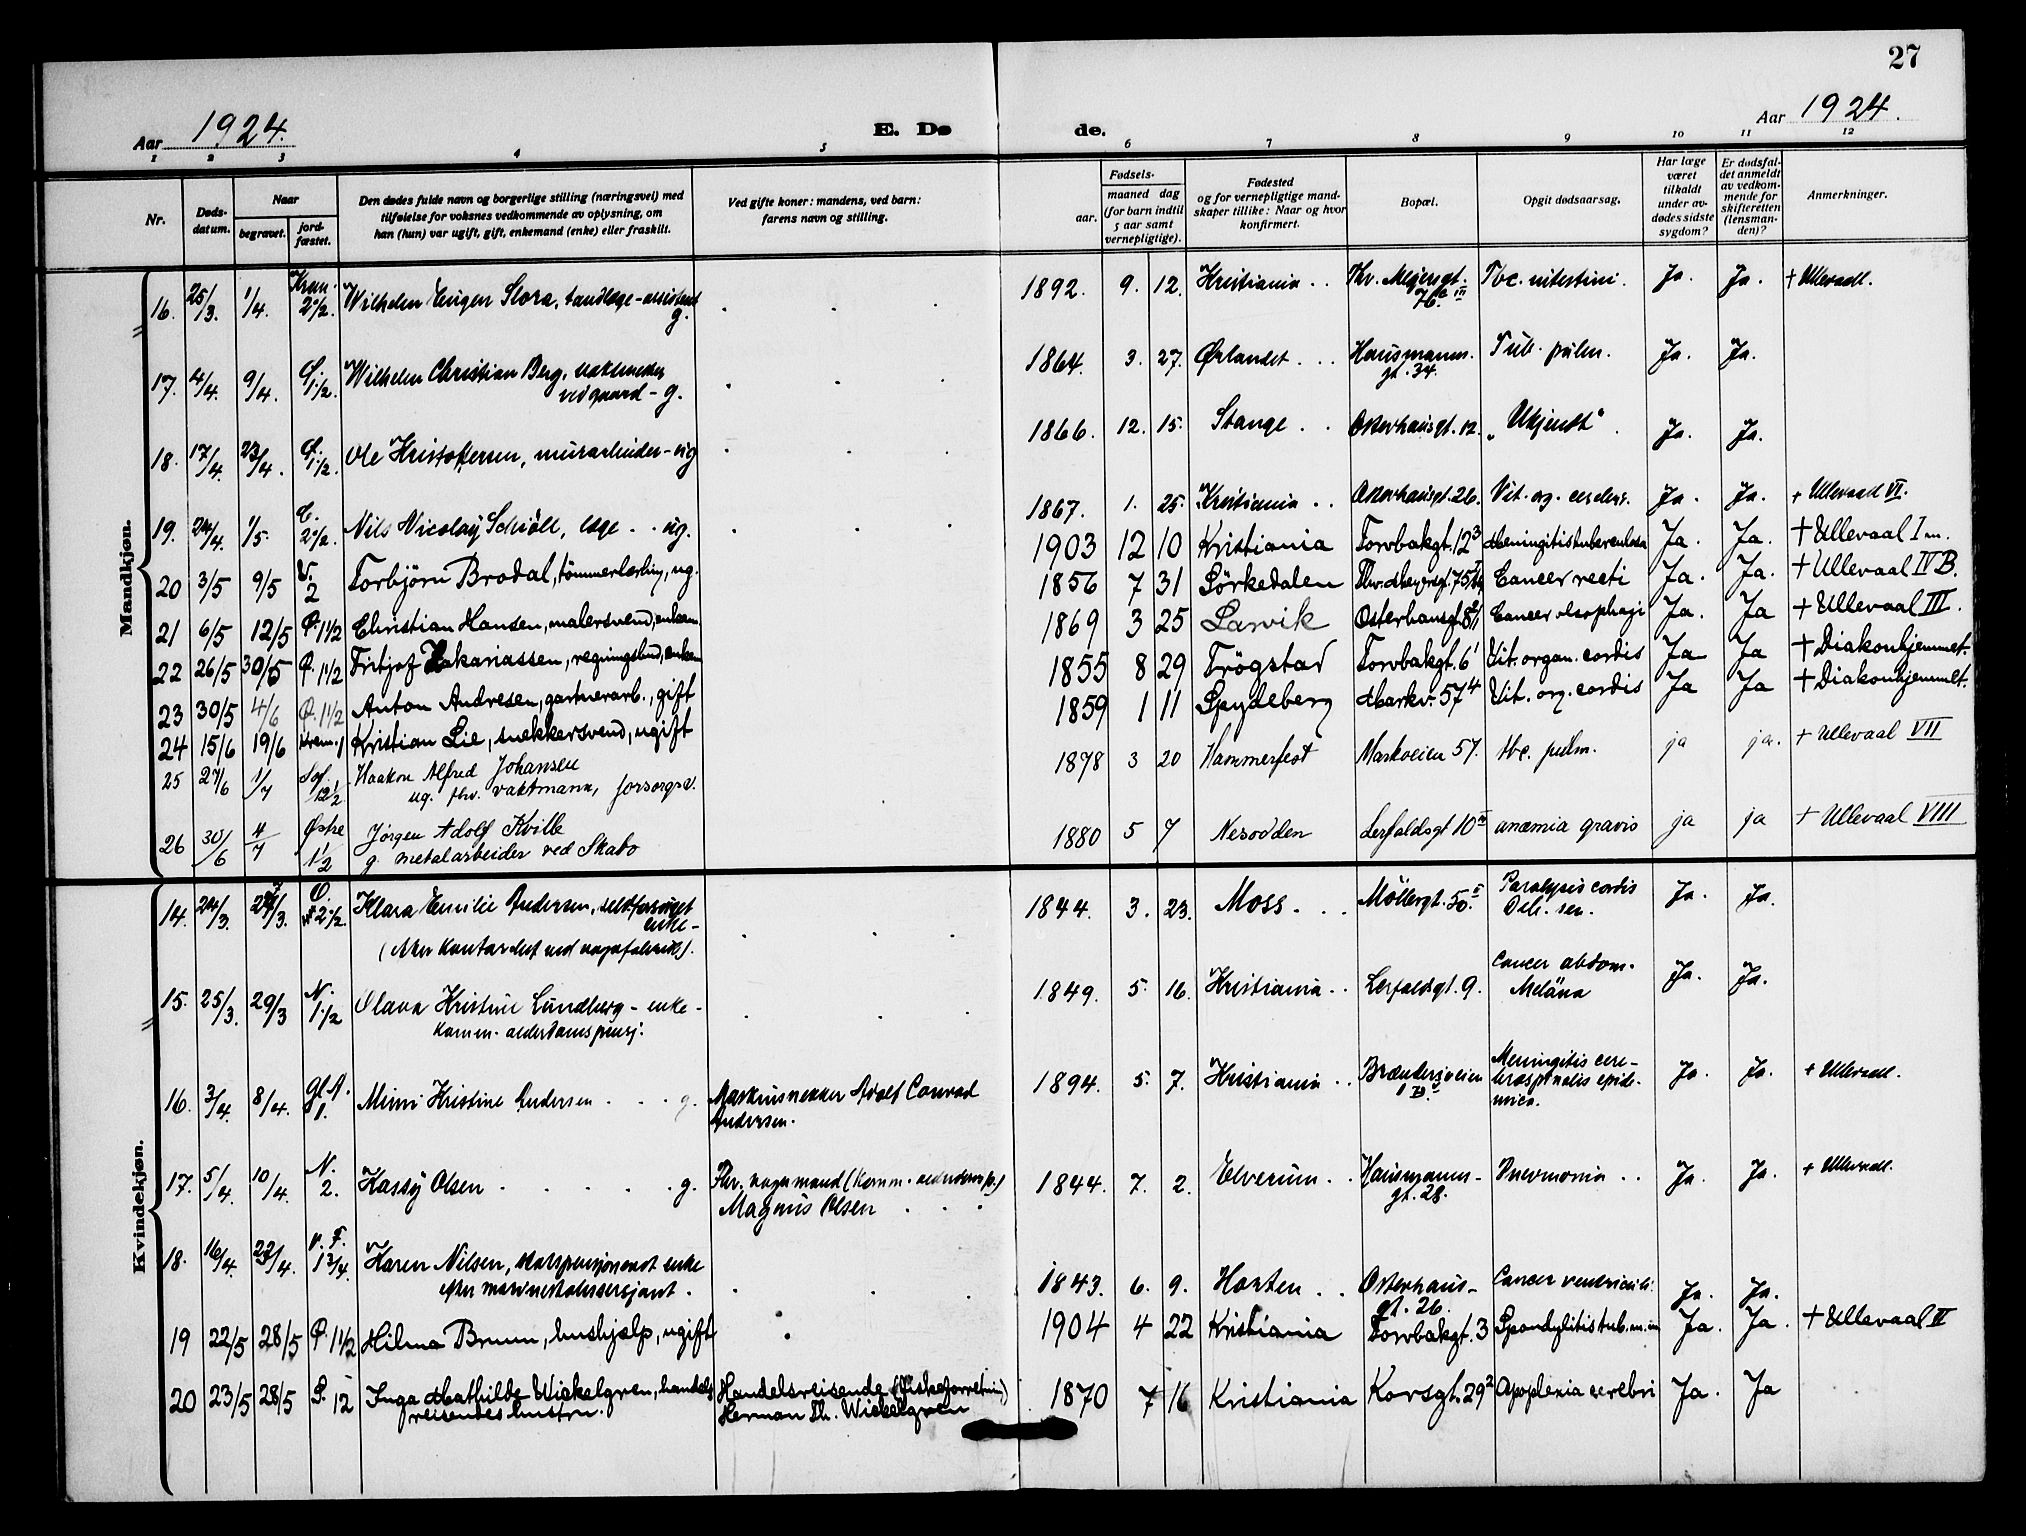 27
Aar 1924.
E. Dø de.
Aar 1924.
1 2 3 4 5 6 7 8 9 10 11 12
Nr.
Døds-
datum.
Naar
begravet.
jord-
fæstet.
Den dødes fulde navn og borgerlige stilling (næringsvei) med
tilføielse for voksnes vedkommende av oplysning, om
han (hun) var ugift, gift, enkemand (enke) eller fraskilt.
Ved gifte koner: mandens, ved barn:
farens navn og stilling.
Fødsels-
aar.
maaned dag
(for barn indtil
5 aar samt
vernepligtige).
Fødested
og for vernepligtige mand-
skaper tillike: Naar og hvor
konfirmert.
Bopæl.
Opgit dødsaarsag.
Har læge
været
tilkaldt
under av-
dødes sidste
sygdom?
Er dødsfal-
det anmeldt
av vedkom-
mende for
skifteretten
(lensman-
den)?
Anmerkninger.
Mandkjøn.
16. 25/3. 1/4. Krem. 2 1/2. Wilhelm Eugen Slora, tandlæge-assistent g. 1892. 9. 12. Kristiania Thv. Meyersgt. Tbc. intestini. Ja. Ja. + Ullevaal.
17. 4/4. 9/4. 1 1/2. Wilhelm Christian Berg,
vedgaard - g. 1864. 3. 27. Ørlandet Hausmanns-
gt. 34. Tub. pulm. Ja. Ja.
18. 17/4. 23/4. 1 1/2. Ole Kristoffersen, murarbeider - ug 1866. 12. 15. Stange Osterhausgt. 12. "Ukjendt" Ja. Ja.
19. 24/4. 1/5. 2 1/2. Nils Nicolay Schiöll, læge ug. 1867. 1. 25. Kristiania Osterhausgt. 26. Vit. org. cordis. Ja. Ja. + Ullevaal VI.
20 3/5 9/5 V. 2 Torbjørn Brodal, tømmerlærling, ug. 1903 12 10 Kristiania Torvbakgt. 12³ Meningitis tuberculosa Ja. Ja. + Ullevaal I m.
21 6/5 12/5 Ø. 1 1/2 Christian Hansen, malersvend, enkem. 1856 7 31 Sørkedalen Thv. Meyersgt. 75 Cancer recti Ja. Ja. + Ullevaal IV B.
22 26/5 30/5 Ø. 1 1/2 Fritjof Zakariassen, regningsbud, enkem 1869 3 25 Larvik Osterhausgt. 8 Cancer oesophagi Ja. Ja + Ullevaal III.
23 30/5 4/6 Ø. 1 1/2 Anton Andresen, gartnerarb., gift 1855 8 29 Trögstad Torvbakgt. 6¹ Vit. organ. cordis Ja Ja + Diakonhjemmet.
24 15/6 19/6 Krem. 1 Kristian Lie, snekkersvend, ugift 1859 1 11 Spydeberg Markv. 57⁴ Vit. org. cordis Ja Ja + Diakonhjemmet.
25 27/6 1/7 Sof. 12 1/2 Haakon Alfred Johansen
ug. fhv. vaktmann, forsorgsv. 1878 3 20 Hammerfest Markveien 57. tbc. pulm. ja ja. + Ullevaal VII
26 30/6 4/7 Østre 1 1/2 Jørgen Adolf Kville
g. metalarbeider ved Skabo 1880 5 7 Nesodden Lerfaldsgt 10 anæmia gravis ja ja + Ullevaal VIII
Kvindekjøn.
14. 24/3. 2 1/2. Klara Emilie Andersen, selvforsørget
enke - 1844. 3. 23. Moss. Möllergt. 50. Paralysis cordis
Deb. sen. Ja. Ja.
15. 25/3. 29/3 N. 1 1/2 Olava Kristine Lundberg - enke -
komm. alderdomspensj. 1849. 5. 16. Kristiania Lerfaldsgt. 9. Cancer abdom.
Meläna Ja. Ja.
16. 3/4. 8/4. Gl. A. 1. Mimi Kristine Andersen g. Maskinsnekker Adolf Conrad
Andersen. 1894. 5. 7. Kristiania Brænderiveien Meningitis cere-
brospinalis epide-
mica. Ja. Ja. + Ullevaal.
17. 5/4. 10/4. N. 2. Hassy Olsen g. Fhv. vognmand
Magnus Olsen 1844. 7. 2. Elverum Hausmanns-
gt. 28. Pneumonia Ja. Ja. + Ullevaal.
18. 16/4. 22/4. V. F. 1 3/4. Karen Nilsen, enke
efter 1843. 6. 9. Horten Osterhaus-
gt. 26. Cancer ventriculi. Ja. Ja.
19 22/5 28/5 Ø. 1 1/2 Hilma Bruun, hushjælp, ugift 1904 4 22 Kristiania Torvbakgt. 3 Spondylitis tub. Ja. Ja. + Ullevaal II
20 23/5 28/5 Ø. 12 Inga Mathilde Wickelgren, handels-
reisendes hustru. Handelsreisende (Fiskeforretning)
Herman Th. Wickelgren 1870 7 16 Kristiania Korsgt. 29² Apoplexia cerebri Ja. Ja